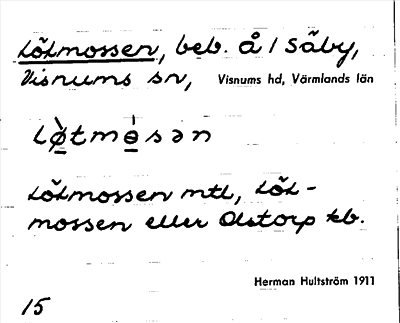 Lötmossen, beb. å / Säby,
Visnums sn, Visnums hd, Värmlands län
Lø̀tmɵ̀sən
Lötmossen mtl, Löt-
mossen eller Olstorp kb.
Herman Hultström 1911
15